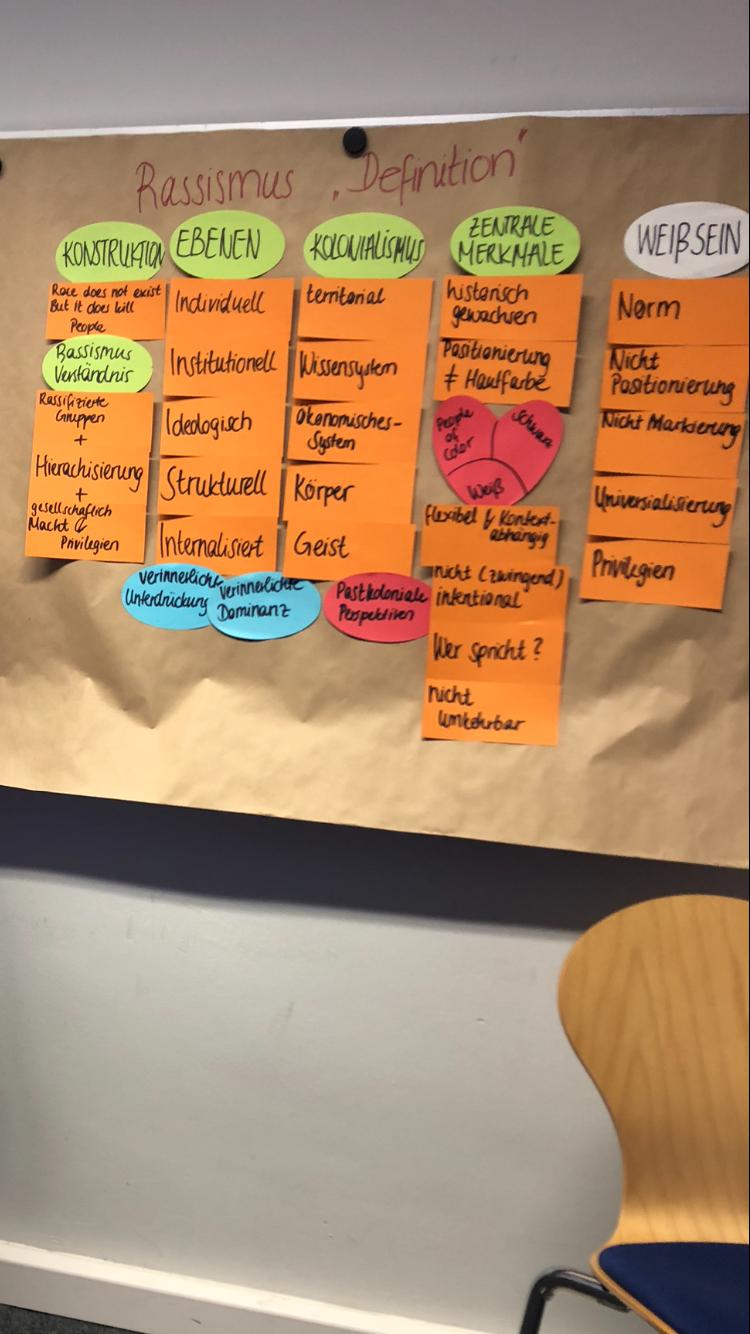 Rassismus „Definition"
KONSTRUKTION
Race does not exist
But it does kill
People
Rassismus
Verständnis
Rassifizierte
Gruppen
+
Hierachisierung
+
gesellschaftlich
Macht &
Privilegien
EBENEN
Individuell
Institutionell
Ideologisch
Strukturell
Internalisiert
verinnerlichte
Unterdrückung
verinnerlichte
Dominanz
KOLONIALISMUS
territorial
Wissensystem
Ökonomisches-
System
Körper
Geist
Postkoloniale
Perspektiven
ZENTRALE
MERKMALE
historisch
gewachsen
Positionierung
≠ Hautfarbe
People
of
Color
Schwarz
Weiß
flexibel & Kontext-
abhängig
nicht (zwingend)
intentional
Wer spricht?
nicht
umkehrbar
WEIßSEIN
Norm
Nicht
Positionierung
Nicht Markierung
Universialisierung
Privilegien